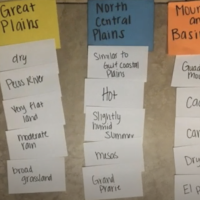 Great
Plains
dry
Pecos River
Very flat
land
moderate
rain
broad
grassland
North
Central
Plains
Similar to
Gulf Coastal
Plains
Hot
Slightly
humid
Summer
mesas
Grand
Prairie
Moun
an
Basi
Guad
Mou
Ca
Can
Dri
El P